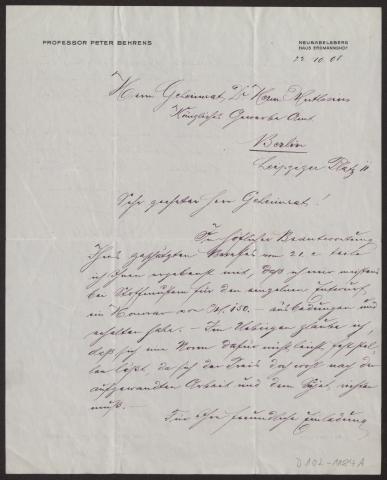 PROFESSOR PETER BEHRENS
NEUBABELSBERG
HAUS ERDMANNSHOF
22. 10. 08
Herrn Geheimrat, Dr Herm. Muthesius
Königliches Gewerbe Amt
Berlin
Leipziger Platz 11
Sehr geehrter Herr Geheimrat!
In höflicher Beantwortung
Ihres geschätzten vom 21. c. teile
ich Ihnen ergebenst mit, daß ich mir meistens
bei Stoffmustern für den einzelnen Entwurf
ein Honorar von M. 150.– ausbedungen und
erhalten habe. – Im Uebrigen glaube ich,
daß sich eine Norm dafür nicht leicht feststel-
len läßt, da sich der Preis doch wohl nach der
aufgewandten Arbeit und dem Sujet richten
muß. –
Für Ihre freundliche Einladung
D 102-1184 A